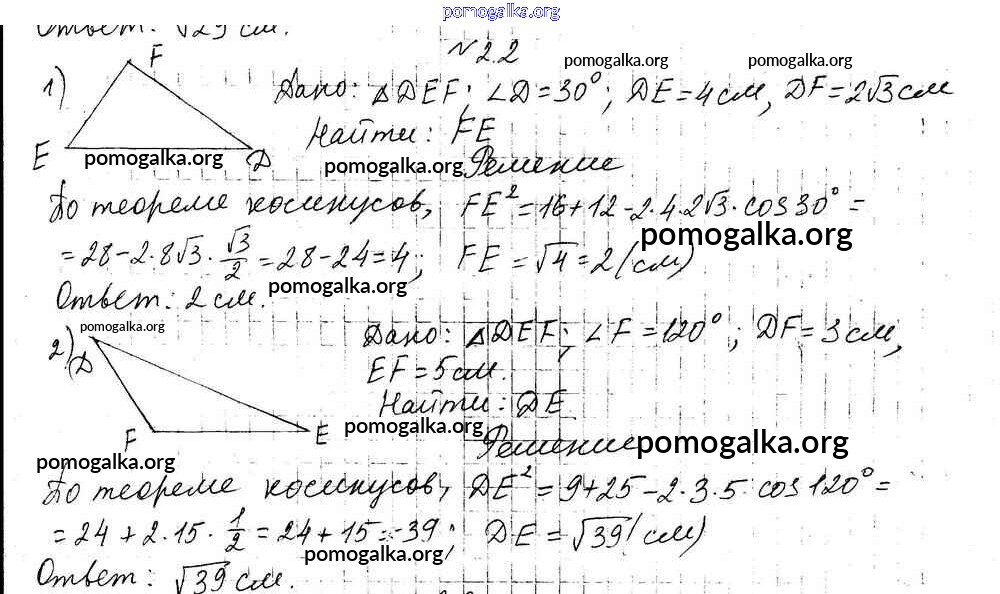 pomogalka.org
Ответ: √29 см.
№ 2.2
pomogalka.org pomogalka.org
1) F E D
Дано: △DEF; ∠D = 30°; DE = 4 см, DF = 2√3 см
Найти: FE
pomogalka.org pomogalka.org Решение
По теореме косинусов, FE² = 16 + 12 - 2·4·2√3·cos 30° =
pomogalka.org
= 28 - 2·8√3·√3/2 = 28 - 24 = 4; FE = √4 = 2 (см)
pomogalka.org
Ответ: 2 см.
pomogalka.org
2) D F E
Дано: △DEF; ∠F = 120°; DF = 3 см,
EF = 5 см.
Найти: DE
pomogalka.org
Решение pomogalka.org
pomogalka.org
По теореме косинусов, DE² = 9 + 25 - 2·3·5 cos 120° =
= 24 + 2·15·1/2 = 24 + 15 = 39; DE = √39 (см)
pomogalka.org
Ответ: √39 см.